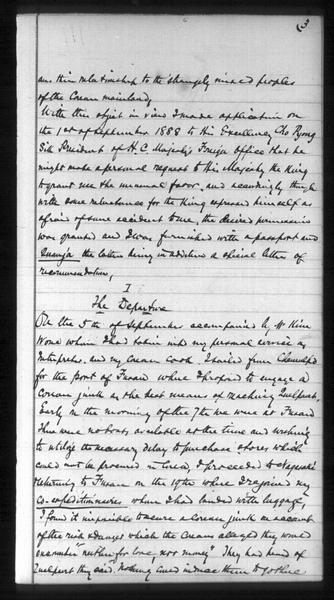 3
and their relationship to the strangely mixed peoples
of the Corean mainland,
With this object in view I made application on
the 1st of September 1888 to His Excellency Cho Pyong
Sik President of H. C. Majesty's Foreign Office that he
might make a personal request to His Majesty the King
to grant me the unusual favor, and accordingly though
with some reluctance for the King expressed himself as
afraid of some accident to me, the desired permission
was granted and I was furnished with a passport and
Quanja the latter being in addition a official letter of
recommendation,
I
The Departure
On the 5th of September accompanied by Mr Kim
Wona whom I had taken into my personal service as
Interpreter, and my Corean Cook I sailed from Chemulpo
for the port of Fusan where I hoped to engage a
Corean junk as the best means of reaching Quelpart,
Early in the morning of the 7th we were at Fusan
There were no boats available at the time and wishing
to utilize the necessary delay to purchase stores which
could not be procured in Corea, I proceeded to Nagasaki
returning to Fusan on the 19th where I rejoined my
co-expeditionaires, whom I had landed with luggage,
I found it impossible to secure a Corean junk on account
of the risk & danger which the Coreans alleged they would
encounter "neither for love, nor money" They had heard of
Quelpart they said. Nothing could induce them to go there